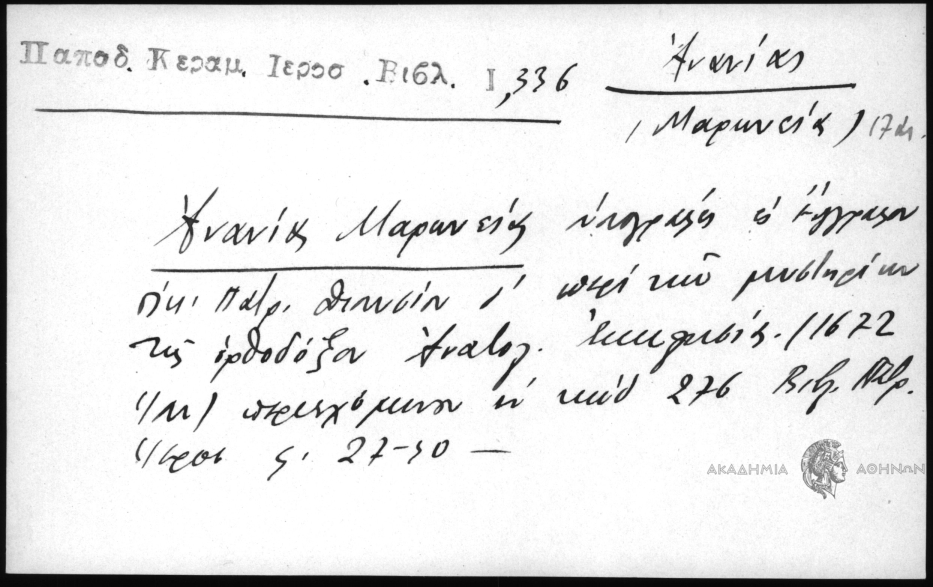 Παπαδ. Κεραμ. Ιεροσ. Βιβλ. Ι, 336
Ἀνανίας
(Μαρωνείας) 17 αι.
Ἀνανίας Μαρωνείας ὑπογράφει εἰς ἔγγραφον
Οἰκ. Πατρ. Διονυσίου Δ' περὶ τῶν μυστηρίων
τῆς ὀρθοδόξου Ἀνατολ. Ἐκκλησίας. (1672
) περιεχόμενον ἐν κώδ 276 Βιβλ. Πατρ.
Ἱεροσ φ. 27-30 —
ΑΚΑΔΗΜΙΑ ΑΘΗΝΩΝ